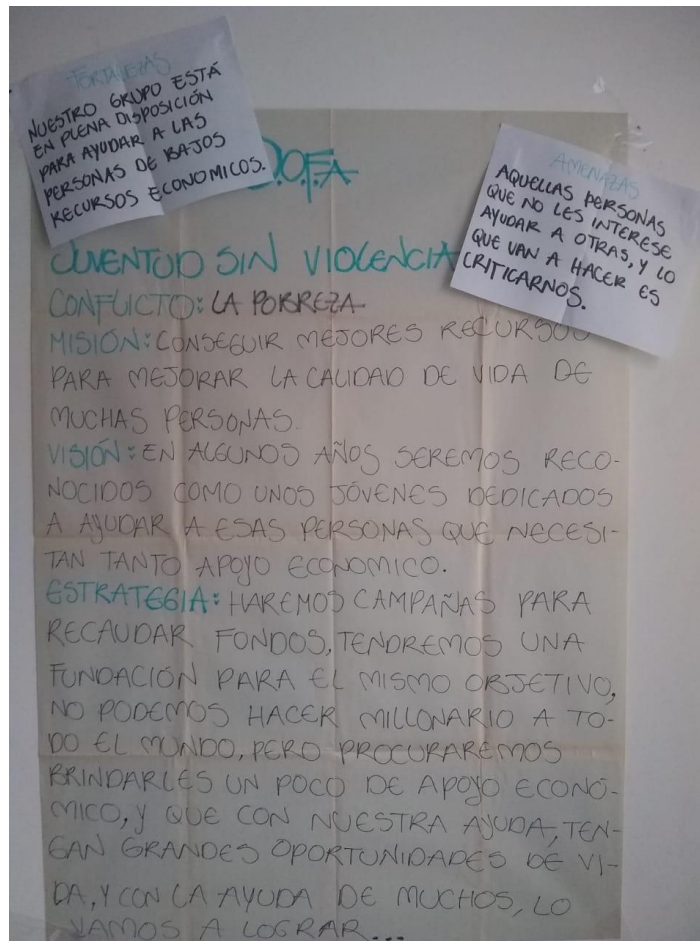 FORTALEZAS
NUESTRO GRUPO ESTÁ
EN PLENA DISPOSICIÓN
PARA AYUDAR A LAS
PERSONAS DE BAJOS
RECURSOS ECONOMICOS.
D.O.F.A
AMENAZAS
AQUELLAS PERSONAS
QUE NO LES INTERESE
AYUDAR A OTRAS, Y LO
QUE VAN A HACER ES
CRITICARNOS.
JUVENTUD SIN VIOLENCIA
CONFLICTO: LA POBREZA
MISIÓN: CONSEGUIR MEJORES RECURSOS
PARA MEJORAR LA CALIDAD DE VIDA DE
MUCHAS PERSONAS.
VISIÓN: EN ALGUNOS AÑOS SEREMOS RECO-
NOCIDOS COMO UNOS JÓVENES DEDICADOS
A AYUDAR A ESAS PERSONAS QUE NECESI-
TAN TANTO APOYO ECONOMICO.
ESTRATEGIA: HAREMOS CAMPAÑAS PARA
RECAUDAR FONDOS, TENDREMOS UNA
FUNDACIÓN PARA EL MISMO OBJETIVO,
NO PODEMOS HACER MILLONARIO A TO-
DO EL MUNDO, PERO PROCURAREMOS
BRINDARLES UN POCO DE APOYO ECONÓ-
MICO, Y QUE CON NUESTRA AYUDA, TEN-
GAN GRANDES OPORTUNIDADES DE VI-
DA, Y CON LA AYUDA DE MUCHOS, LO
VAMOS A LOGRAR...